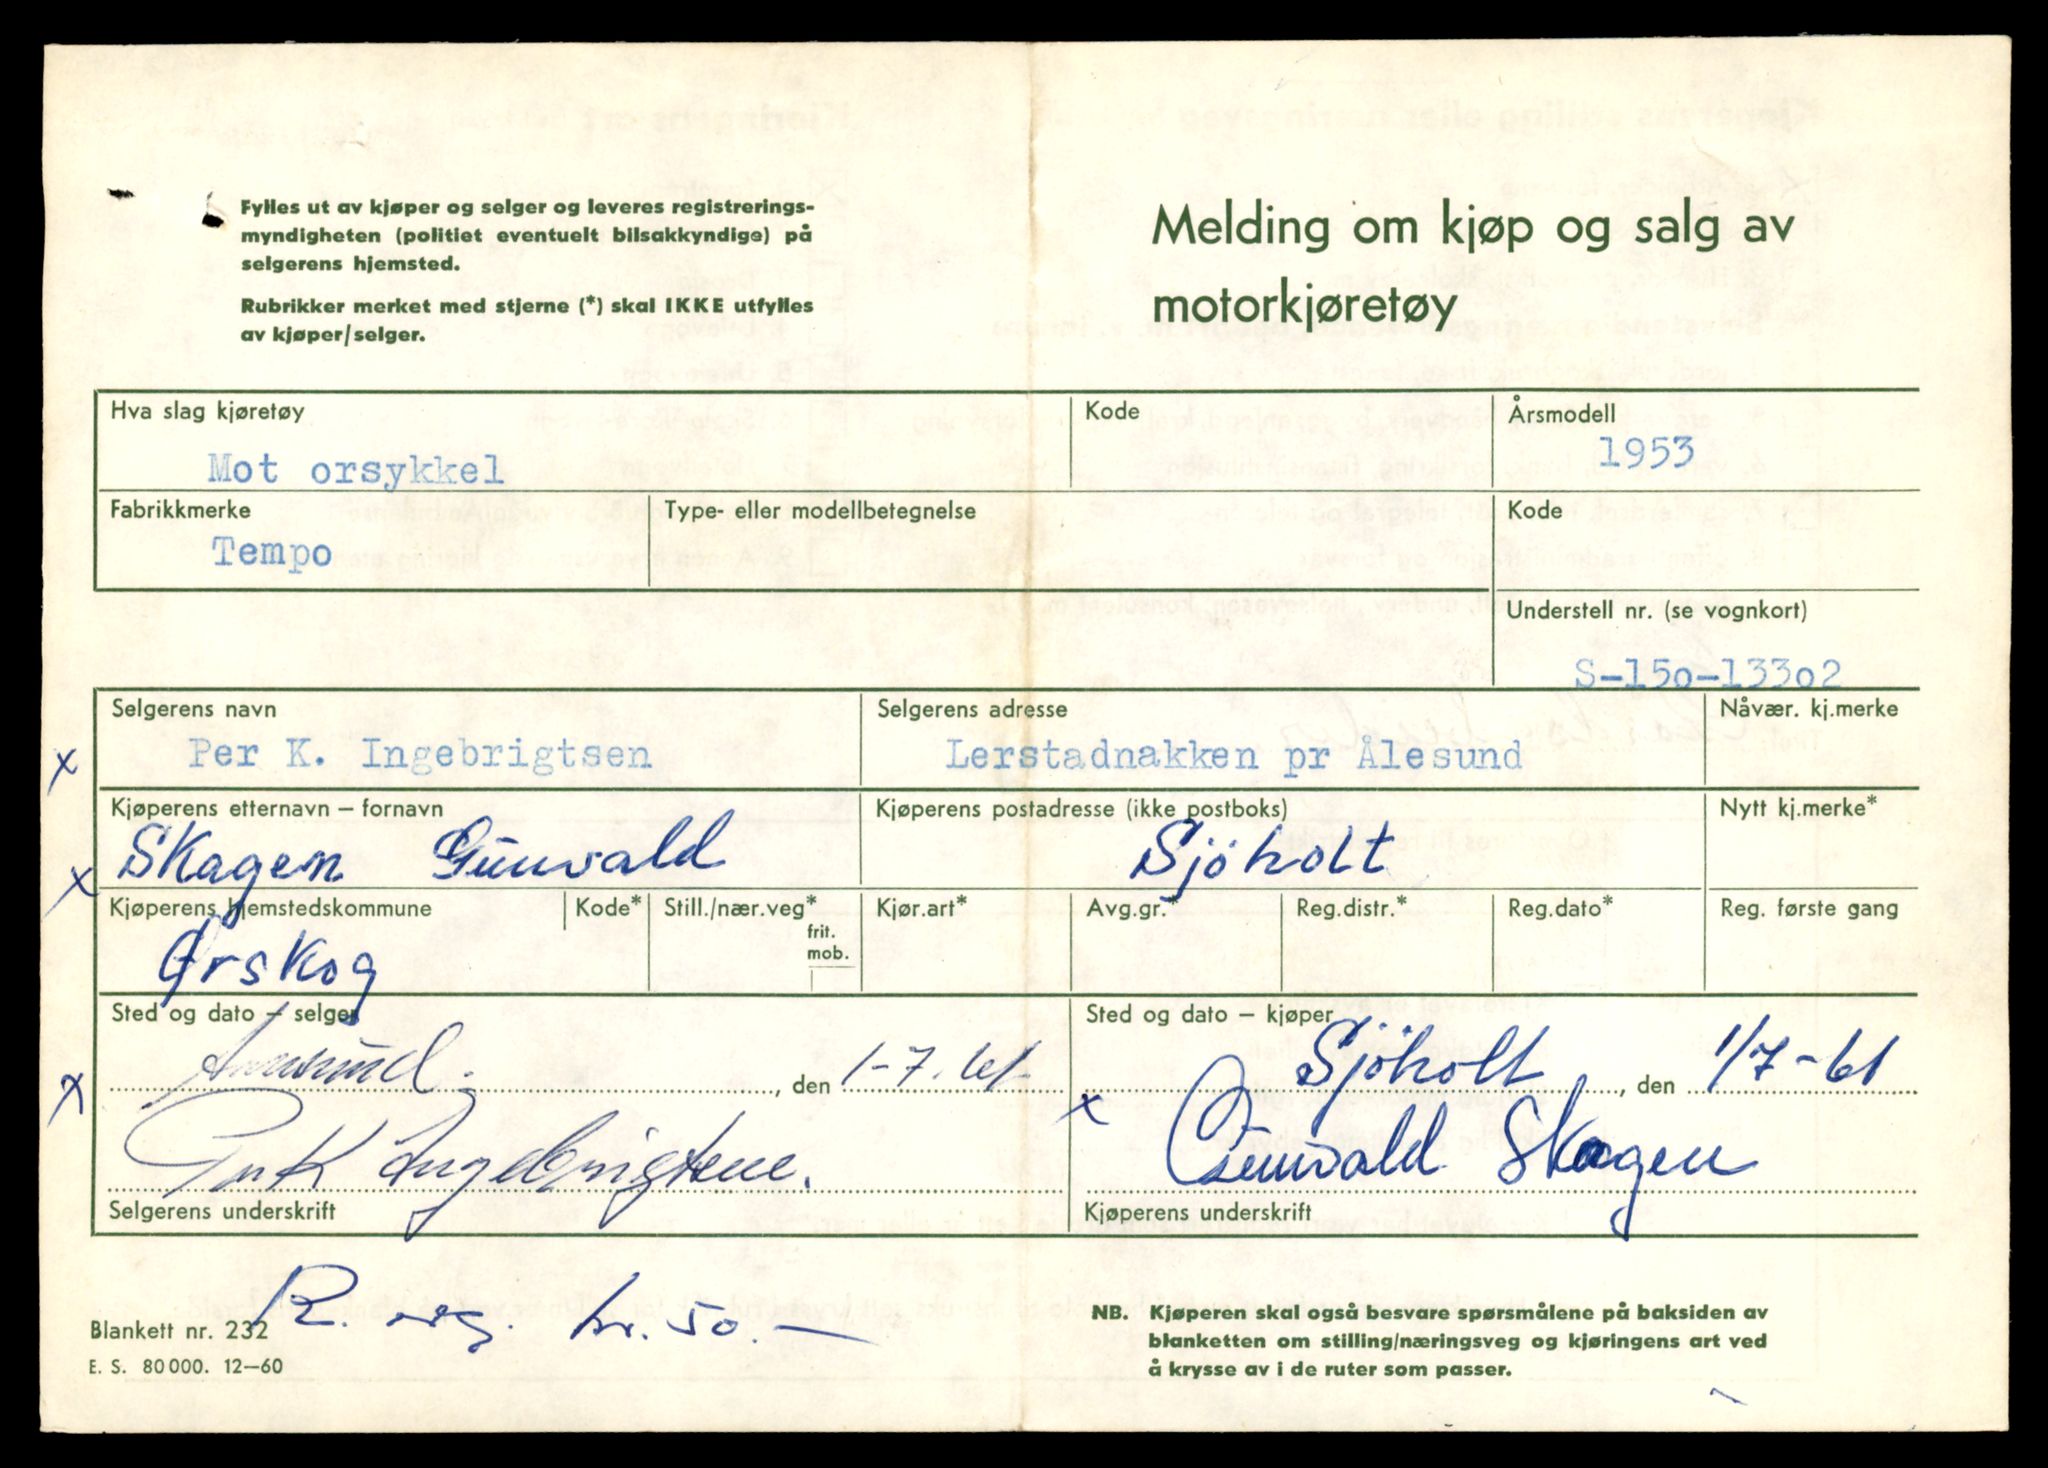 Fylles ut av kjøper og selger og leveres registrerings-
myndigheten (politiet eventuelt bilsakkyndige) på
selgerens hjemsted.
Rubrikker merket med stjerne (*) skal IKKE utfylles
av kjøper/selger.
Melding om kjøp og salg av
motorkjøretøy
Hva slag kjøretøy Kode Årsmodell
Mot orsykkel 1953
Fabrikkmerke Type- eller modellbetegnelse Kode
Tempo
Understell nr. (se vognkort)
S-150-13302
Selgerens navn Selgerens adresse Nåvær. kj.merke
x Per K. Ingebrigtsen Lerstadnakken pr Ålesund
Kjøperens etternavn – fornavn Kjøperens postadresse (ikke postboks) Nytt kj.merke*
x Skagen Gunvald Sjöholt
Kjøperens hjemstedskommune Kode* Still./nær.veg* Kjør.art* Avg.gr.* Reg.distr.* Reg.dato* Reg. første gang
frit.
mob.
Ørskog
Sted og dato – selger Sted og dato – kjøper
x , den 1-7.61 Sjöholt , den 1/7-61
Per K Ingebrigtsen. x Gunvald Skagen
Selgerens underskrift Kjøperens underskrift
R. kr. 50.—
Blankett nr. 232
E. S. 80 000. 12–60
NB. Kjøperen skal også besvare spørsmålene på baksiden av
blanketten om stilling/næringsveg og kjøringens art ved
å krysse av i de ruter som passer.